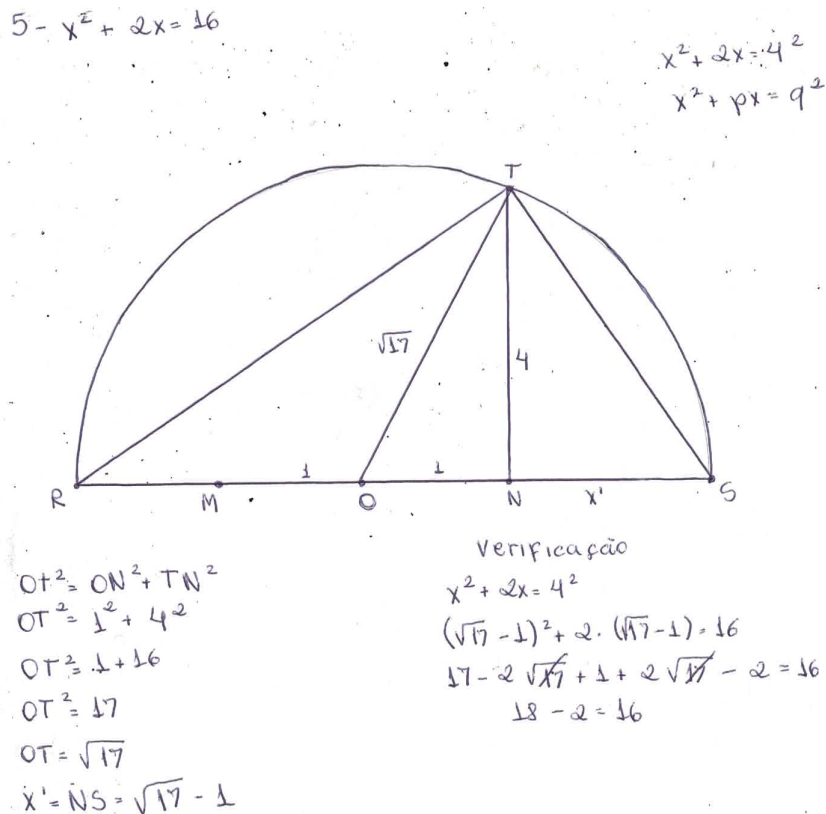 5- x² + 2x = 16
x² + 2x = 4²
x² + px = q²
T
√17
4
1
1
R
M
O
N
x'
S
Ot² = ON² + TN²
OT² = 1² + 4²
OT² = 1 + 16
OT² = 17
OT = √17
x' = NS = √17 - 1
Verificação
x² + 2x = 4²
(√17 - 1)² + 2. (√17 - 1) = 16
17 - 2√17 + 1 + 2√17 - 2 = 16
18 - 2 = 16